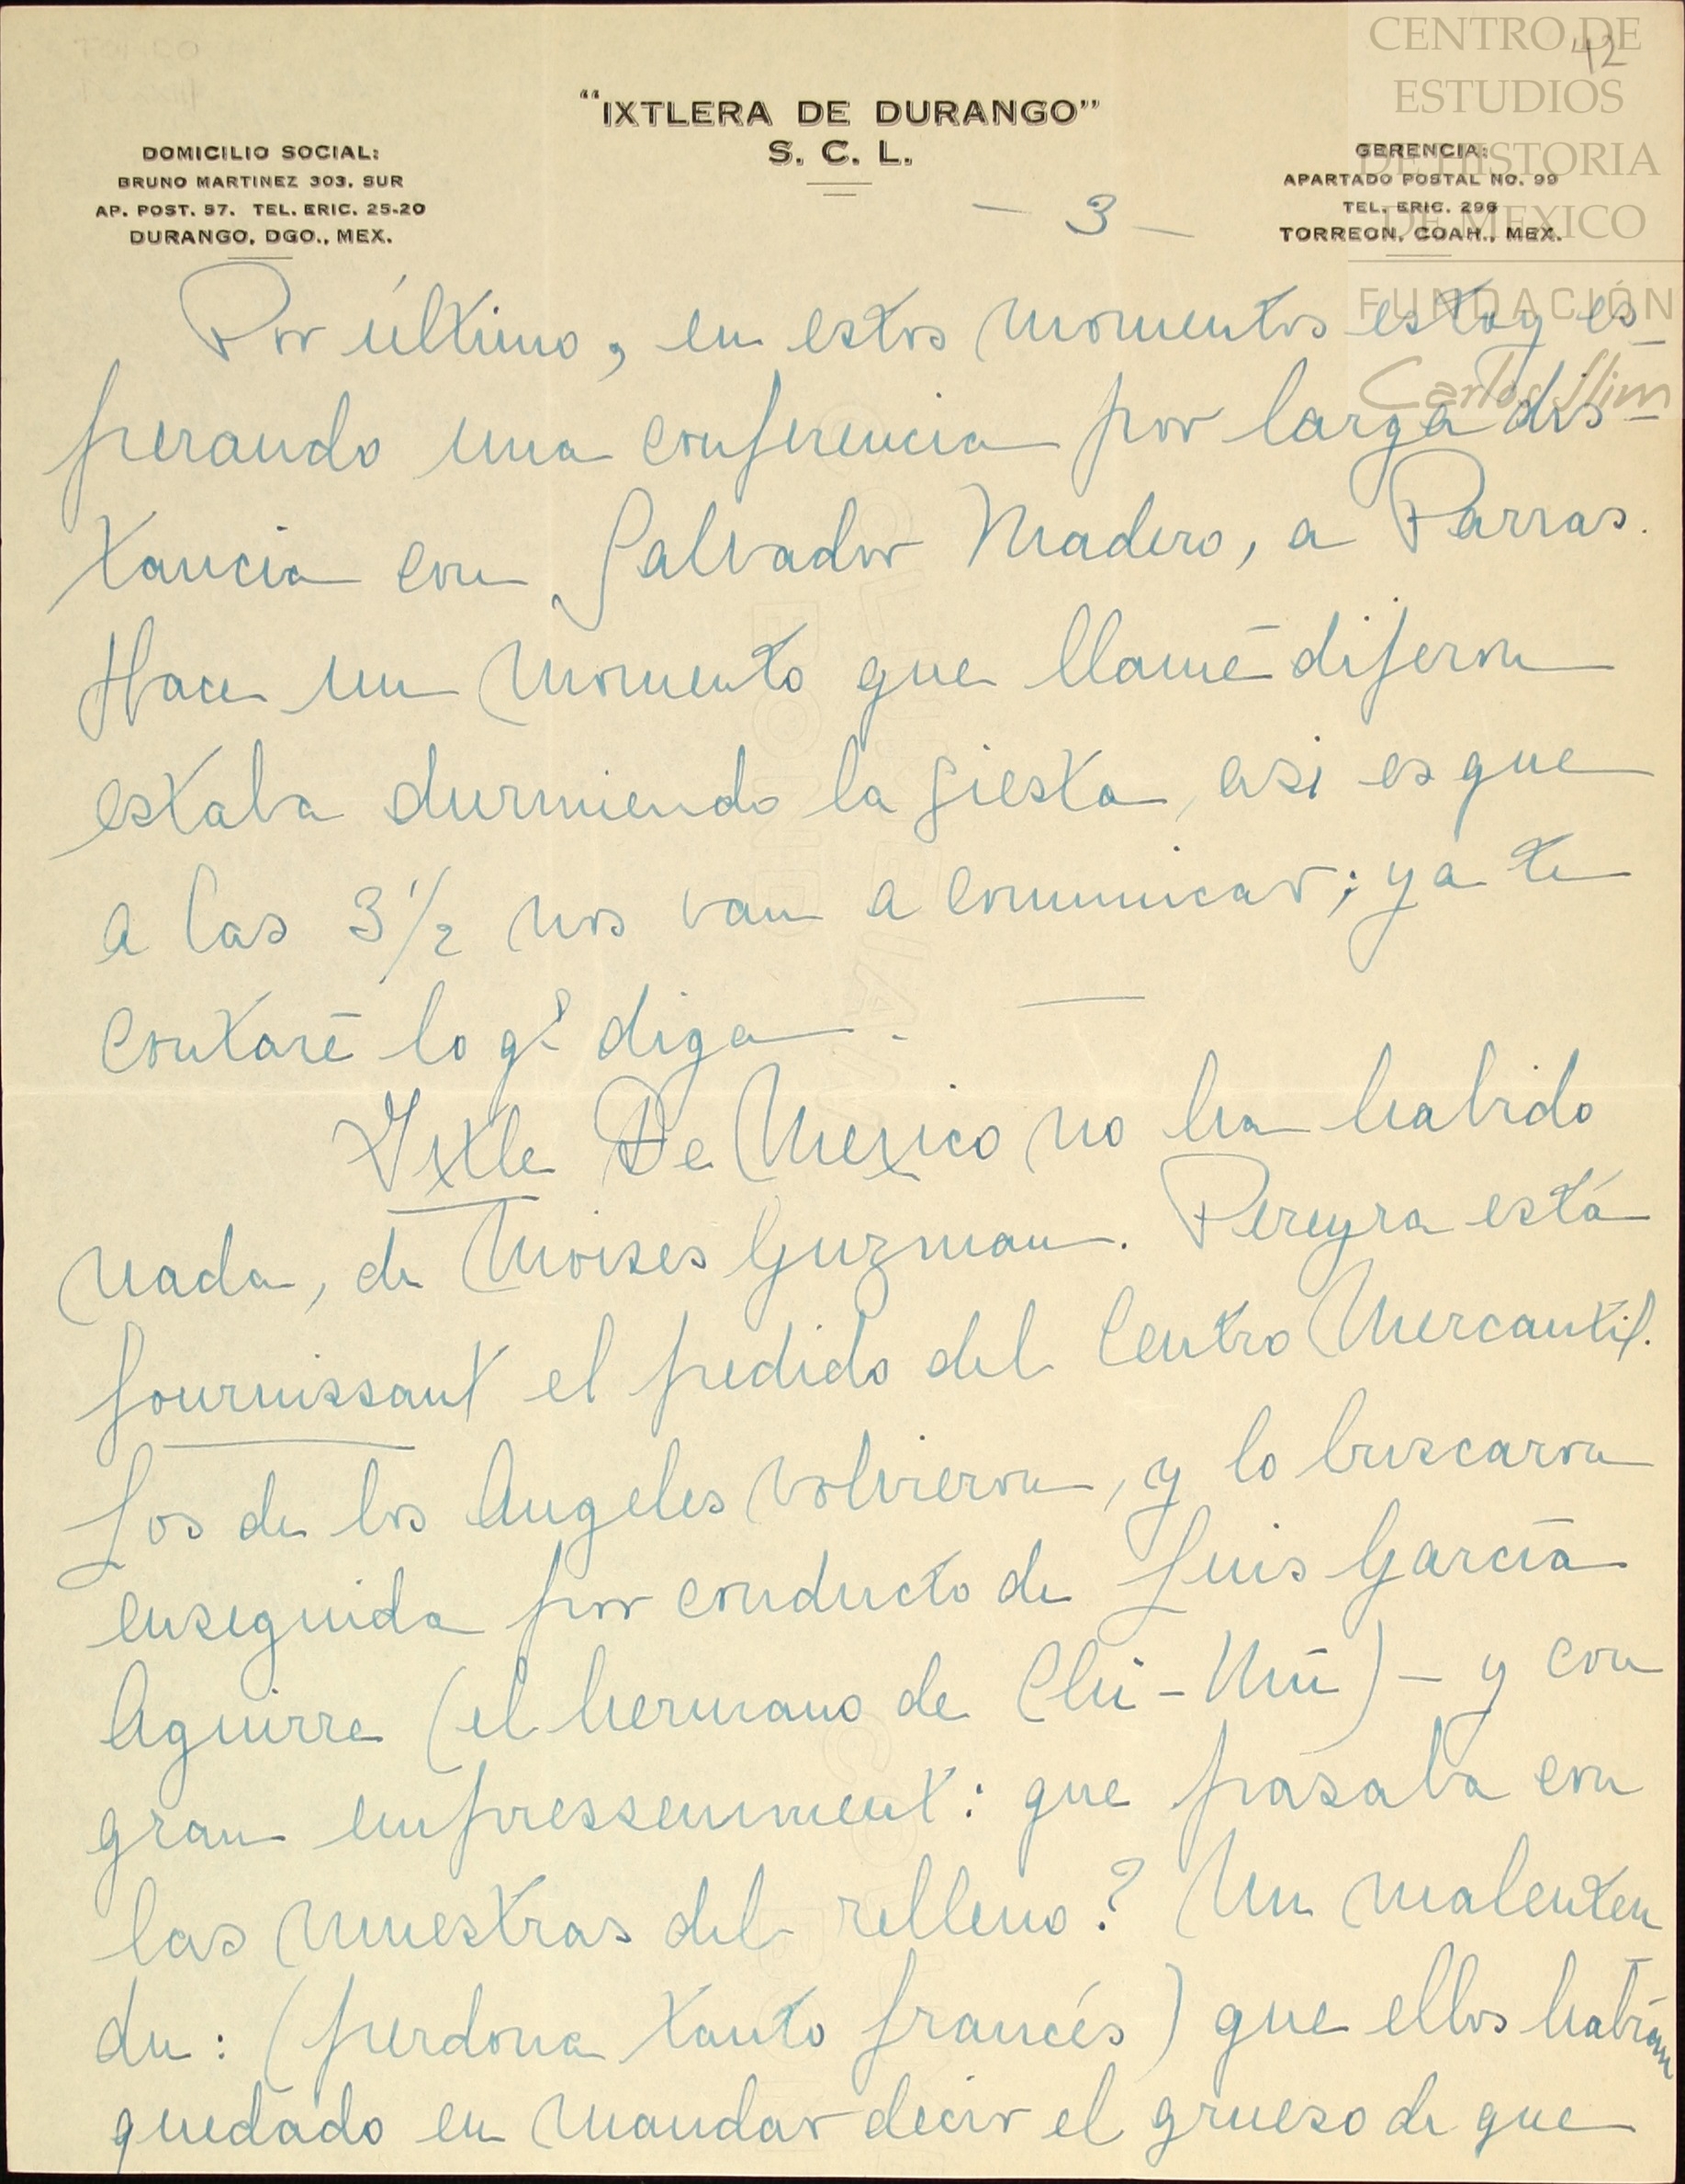 CENTRO DE
ESTUDIOS
DE HISTORIA
DE MEXICO
FUNDACIÓN
Carlos Slim
42
"IXTLERA DE DURANGO"
S. C. L.
DOMICILIO SOCIAL:
BRUNO MARTINEZ 303. SUR
AP. POST. 57. TEL. ERIC. 25-20
DURANGO, DGO., MEX.
GERENCIA:
APARTADO POSTAL NO. 99
TEL. ERIC. 296
TORREON, COAH., MEX.
- 3 -
Por último, en estos momentos estoy es-
perando una conferencia por larga dis-
tancia con Salvador Madero, a Parras.
Hace un momento que llamé dijeron
estaba durmiendo la siesta, asi es que
a las 3 1/2 nos van a comunicar; ya te
contaré lo qe diga.
Ixtle De Mexico no ha habido
nada, de Moises Guzman. Pereyra está
fournissant el pedido del Centro Mercantil.
Los de los Angeles volvieron, y lo buscaron
enseguida por conducto de Luis García
Aguirre (el hermano de Chi-Mú) - y con
gran empressemment: que pasaba con
las muestras del relleno? Un malenten
du: (perdona tanto francés) que ellos habían
quedado en mandar decir el grueso de que